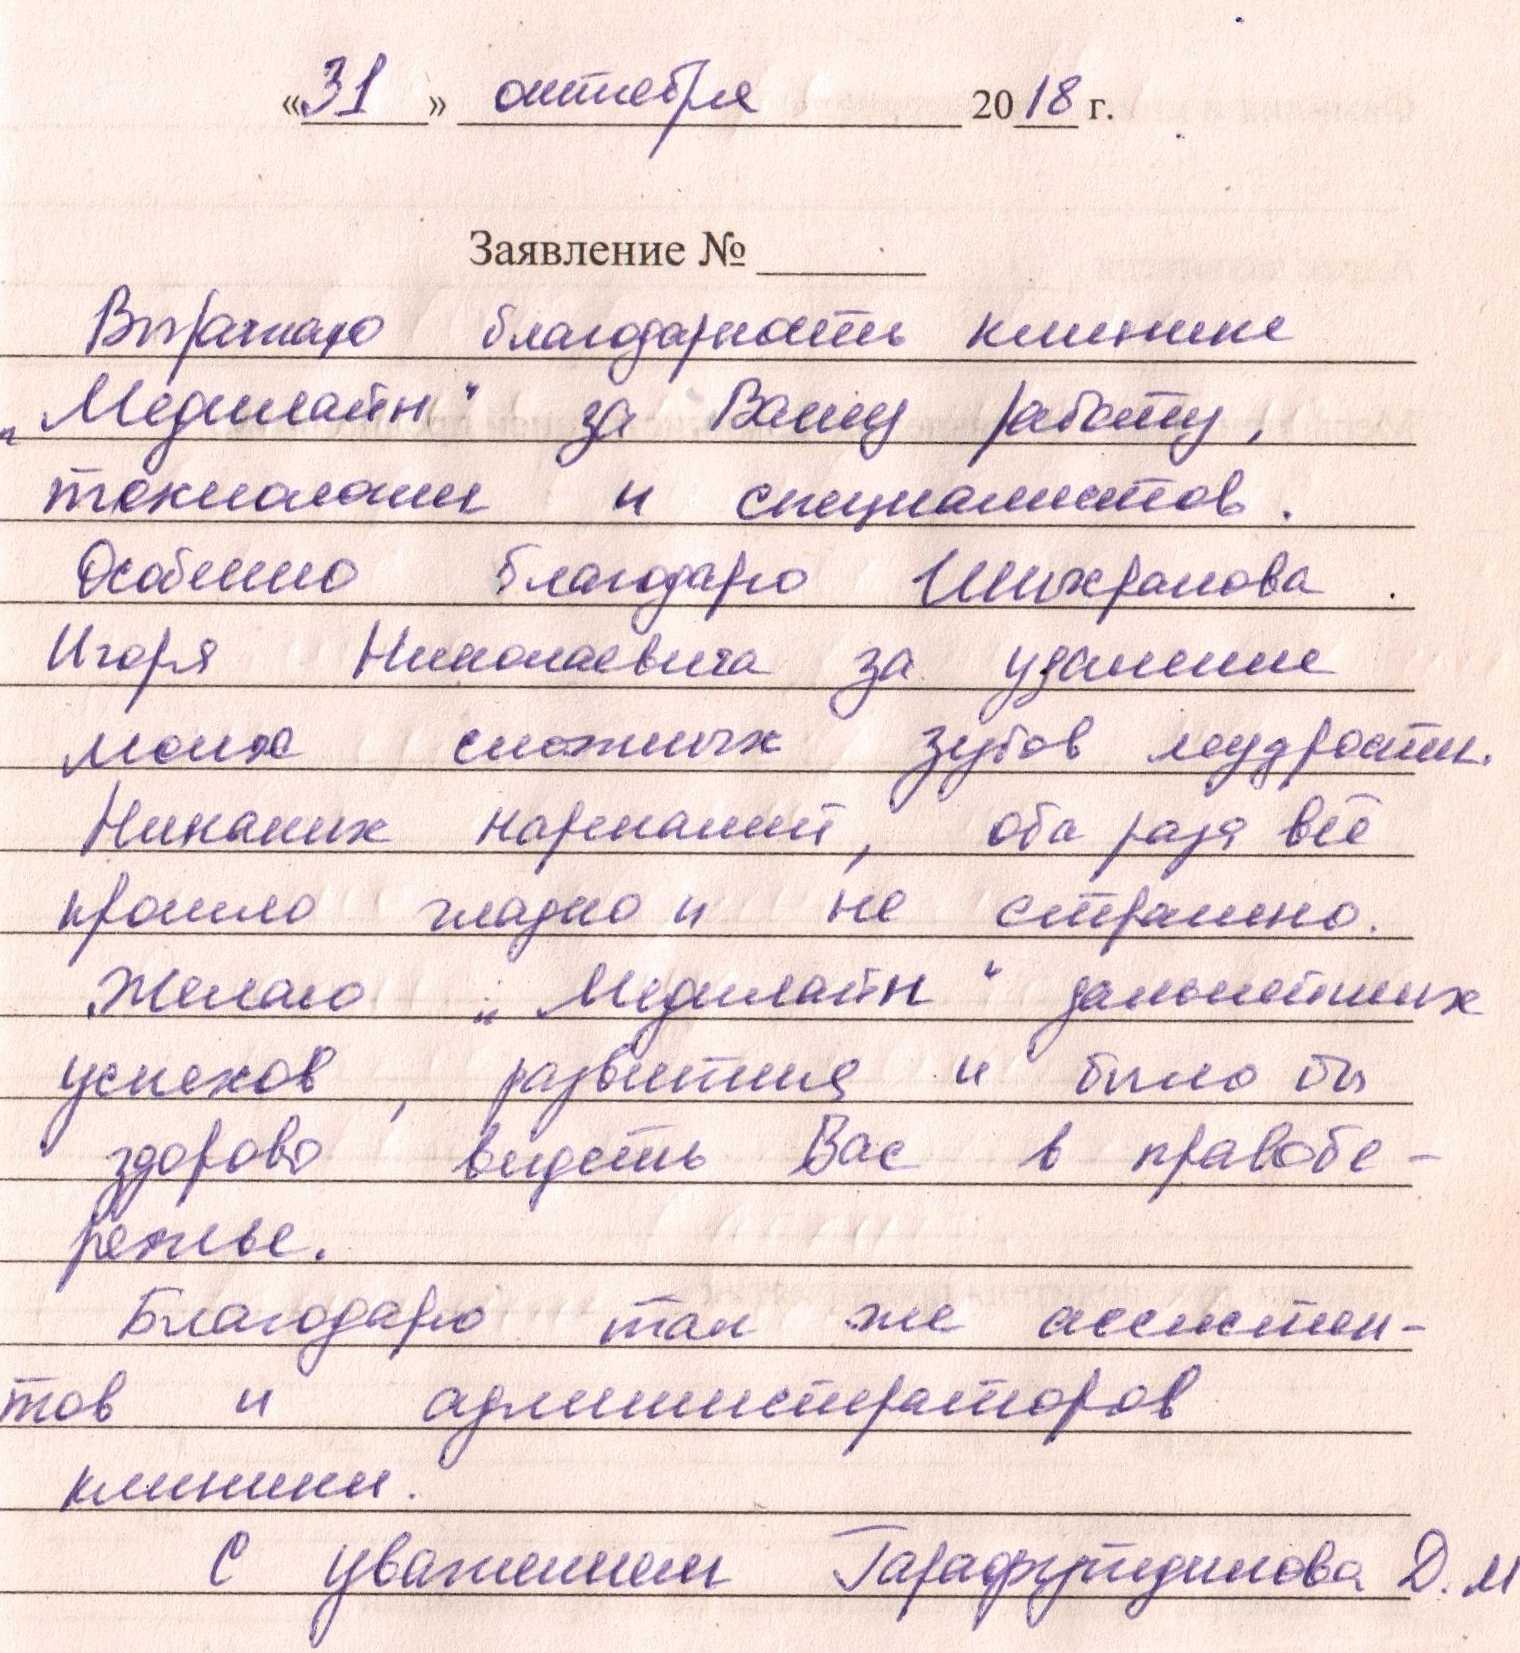 «31» октября 2018 г.
Заявление № ______
Выражаю благодарность клинике
„Медилайн“ за Вашу работу,
технологии и специалистов.
Особенно благодарю Шихранова
Игоря Николаевича за удаление
моих сложных зубов мудрости.
Никаких нареканий, оба раза всё
прошло гладко и не страшно.
Желаю „Медилайн“ дальнейших
успехов, развития и было бы
здорово видеть Вас в правобе-
режье.
Благодарю так же ассистен-
тов и администраторов
клиники.
С уважением Гарафутдинова Д.М